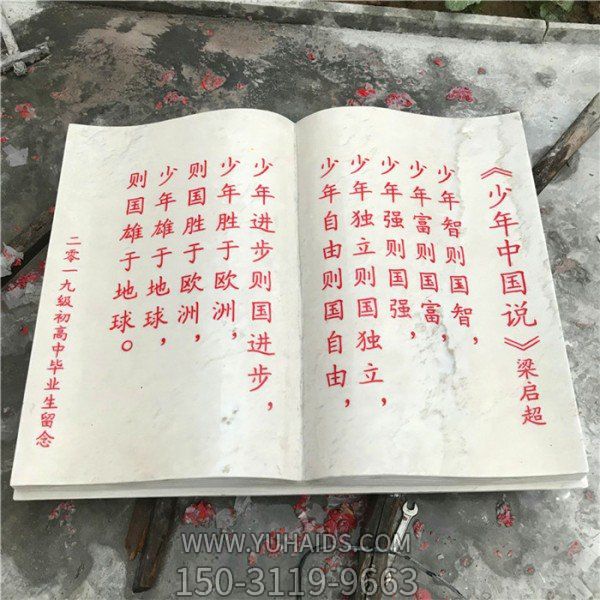 《少年中国说》梁启超
少年智则国智，
少年富则国富，
少年强则国强，
少年独立则国独立，
少年自由则国自由，
少年进步则国进步，
少年胜于欧洲，
则国胜于欧洲，
少年雄于地球，
则国雄于地球。
二零一九级初高中毕业生留念
WWW.YUHAIDS.COM
150-3119-9663